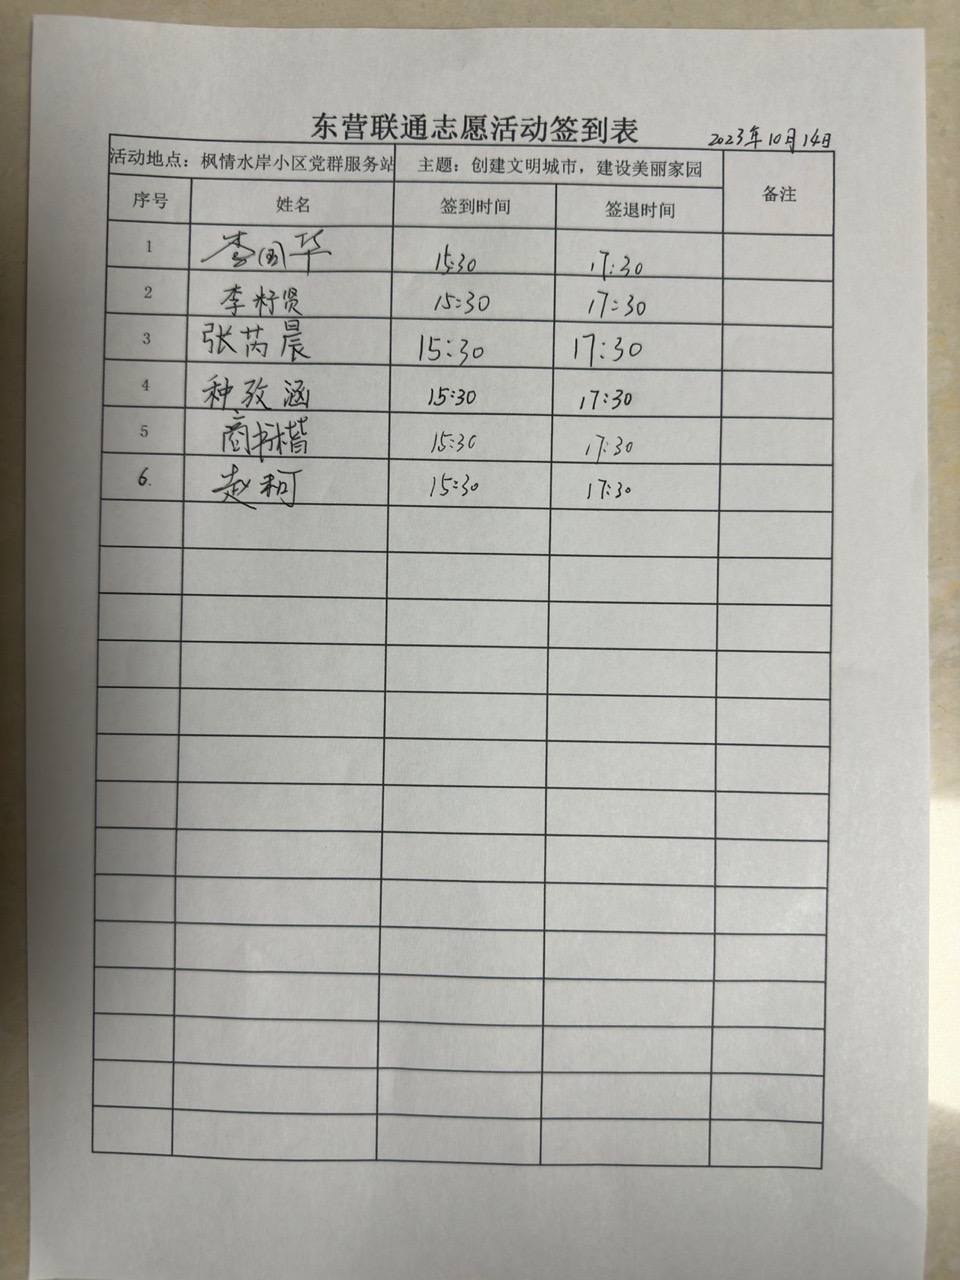 东营联通志愿活动签到表
2023年10月14日
活动地点：枫情水岸小区党群服务站 主题：创建文明城市，建设美丽家园 备注
序号 姓名 签到时间 签退时间
1 李国华 15:30 17:30
2 李籽贤 15:30 17:30
3 张芮晨 15:30 17:30
4 种孜涵 15:30 17:30
5 商书楷 15:30 17:30
6. 赵 15:30 17:30